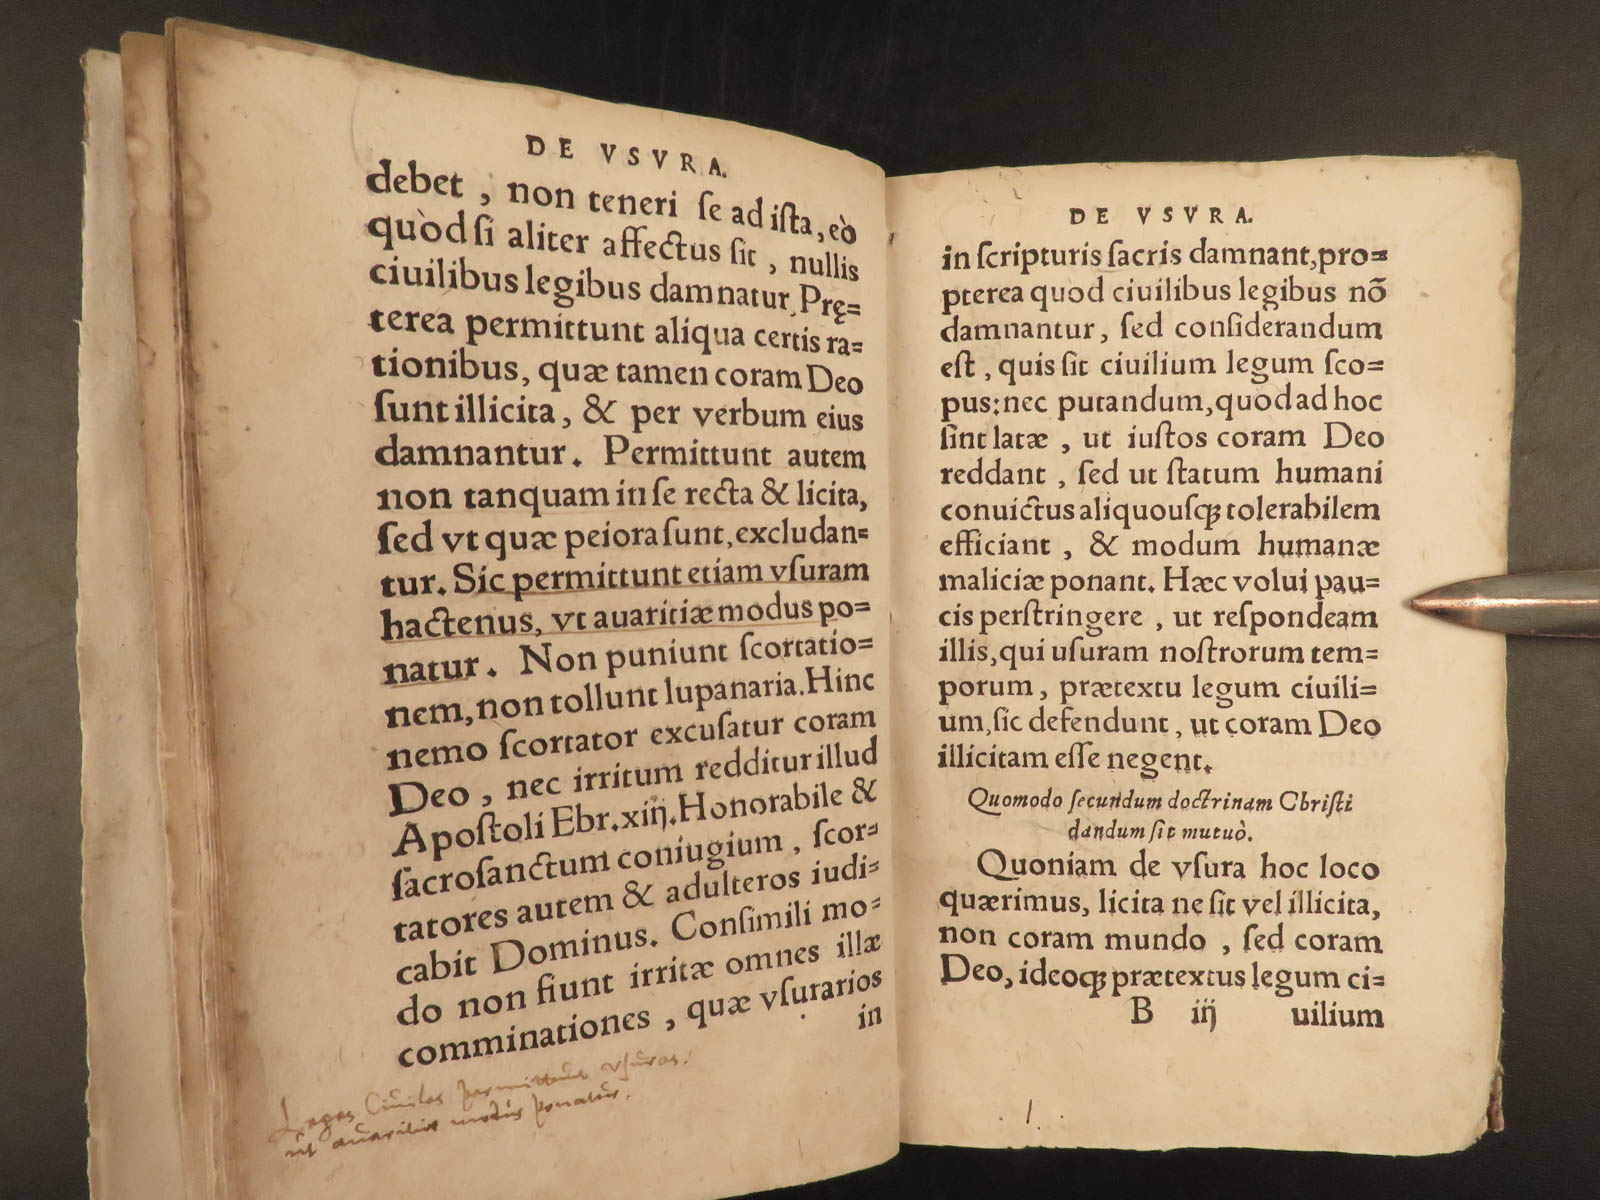 DE VSVRA.
debet, non teneri ſe ad iſta, eò
quòd ſi aliter affectus ſit, nullis
ciuilibus legibus damnatur. Prę=
terea permittunt aliqua certis ra=
tionibus, quæ tamen coram Deo
ſunt illicita, & per verbum eius
damnantur. Permittunt autem
non tanquam in ſe recta & licita,
ſed vt quæ peiora ſunt, excludan=
tur. Sic permittunt etiam vſuram
hactenus, vt auaritiæ modus po=
natur. Non puniunt ſcortatio=
nem, non tollunt lupanaria. Hinc
nemo ſcortator excuſatur coram
Deo, nec irritum redditur illud
Apoſtoli Ebr. xiij. Honorabile &
ſacroſanctum coniugium, ſcor=
tatores autem & adulteros iudi=
cabit Dominus. Conſimili mo=
do non fiunt irritæ omnes illæ
comminationes, quæ vſurarios
in
Leges Ciuiles permittunt vſuras.
ut avaritiæ modus ponatur.
DE VSVRA.
in ſcripturis ſacris damnant, pro=
pterea quod ciuilibus legibus nō
damnantur, ſed conſiderandum
eſt, quis ſit ciuilium legum ſco=
pus: nec putandum, quod ad hoc
ſint latæ, ut iuſtos coram Deo
reddant, ſed ut ſtatum humani
conuictus aliquouſqꝫ tolerabilem
efficiant, & modum humanæ
maliciæ ponant. Hæc volui pau=
cis perſtringere, ut reſpondeam
illis, qui uſuram noſtrorum tem=
porum, prætextu legum ciuili=
um, ſic defendunt, ut coram Deo
illicitam eſſe negent.
Quomodo ſecundum doctrinam Chriſti
dandum ſit mutuò.
Quoniam de vſura hoc loco
quærimus, licita ne ſit vel illicita,
non coram mundo, ſed coram
Deo, ideoqꝫ prætextus legum ci=
B iij uilium